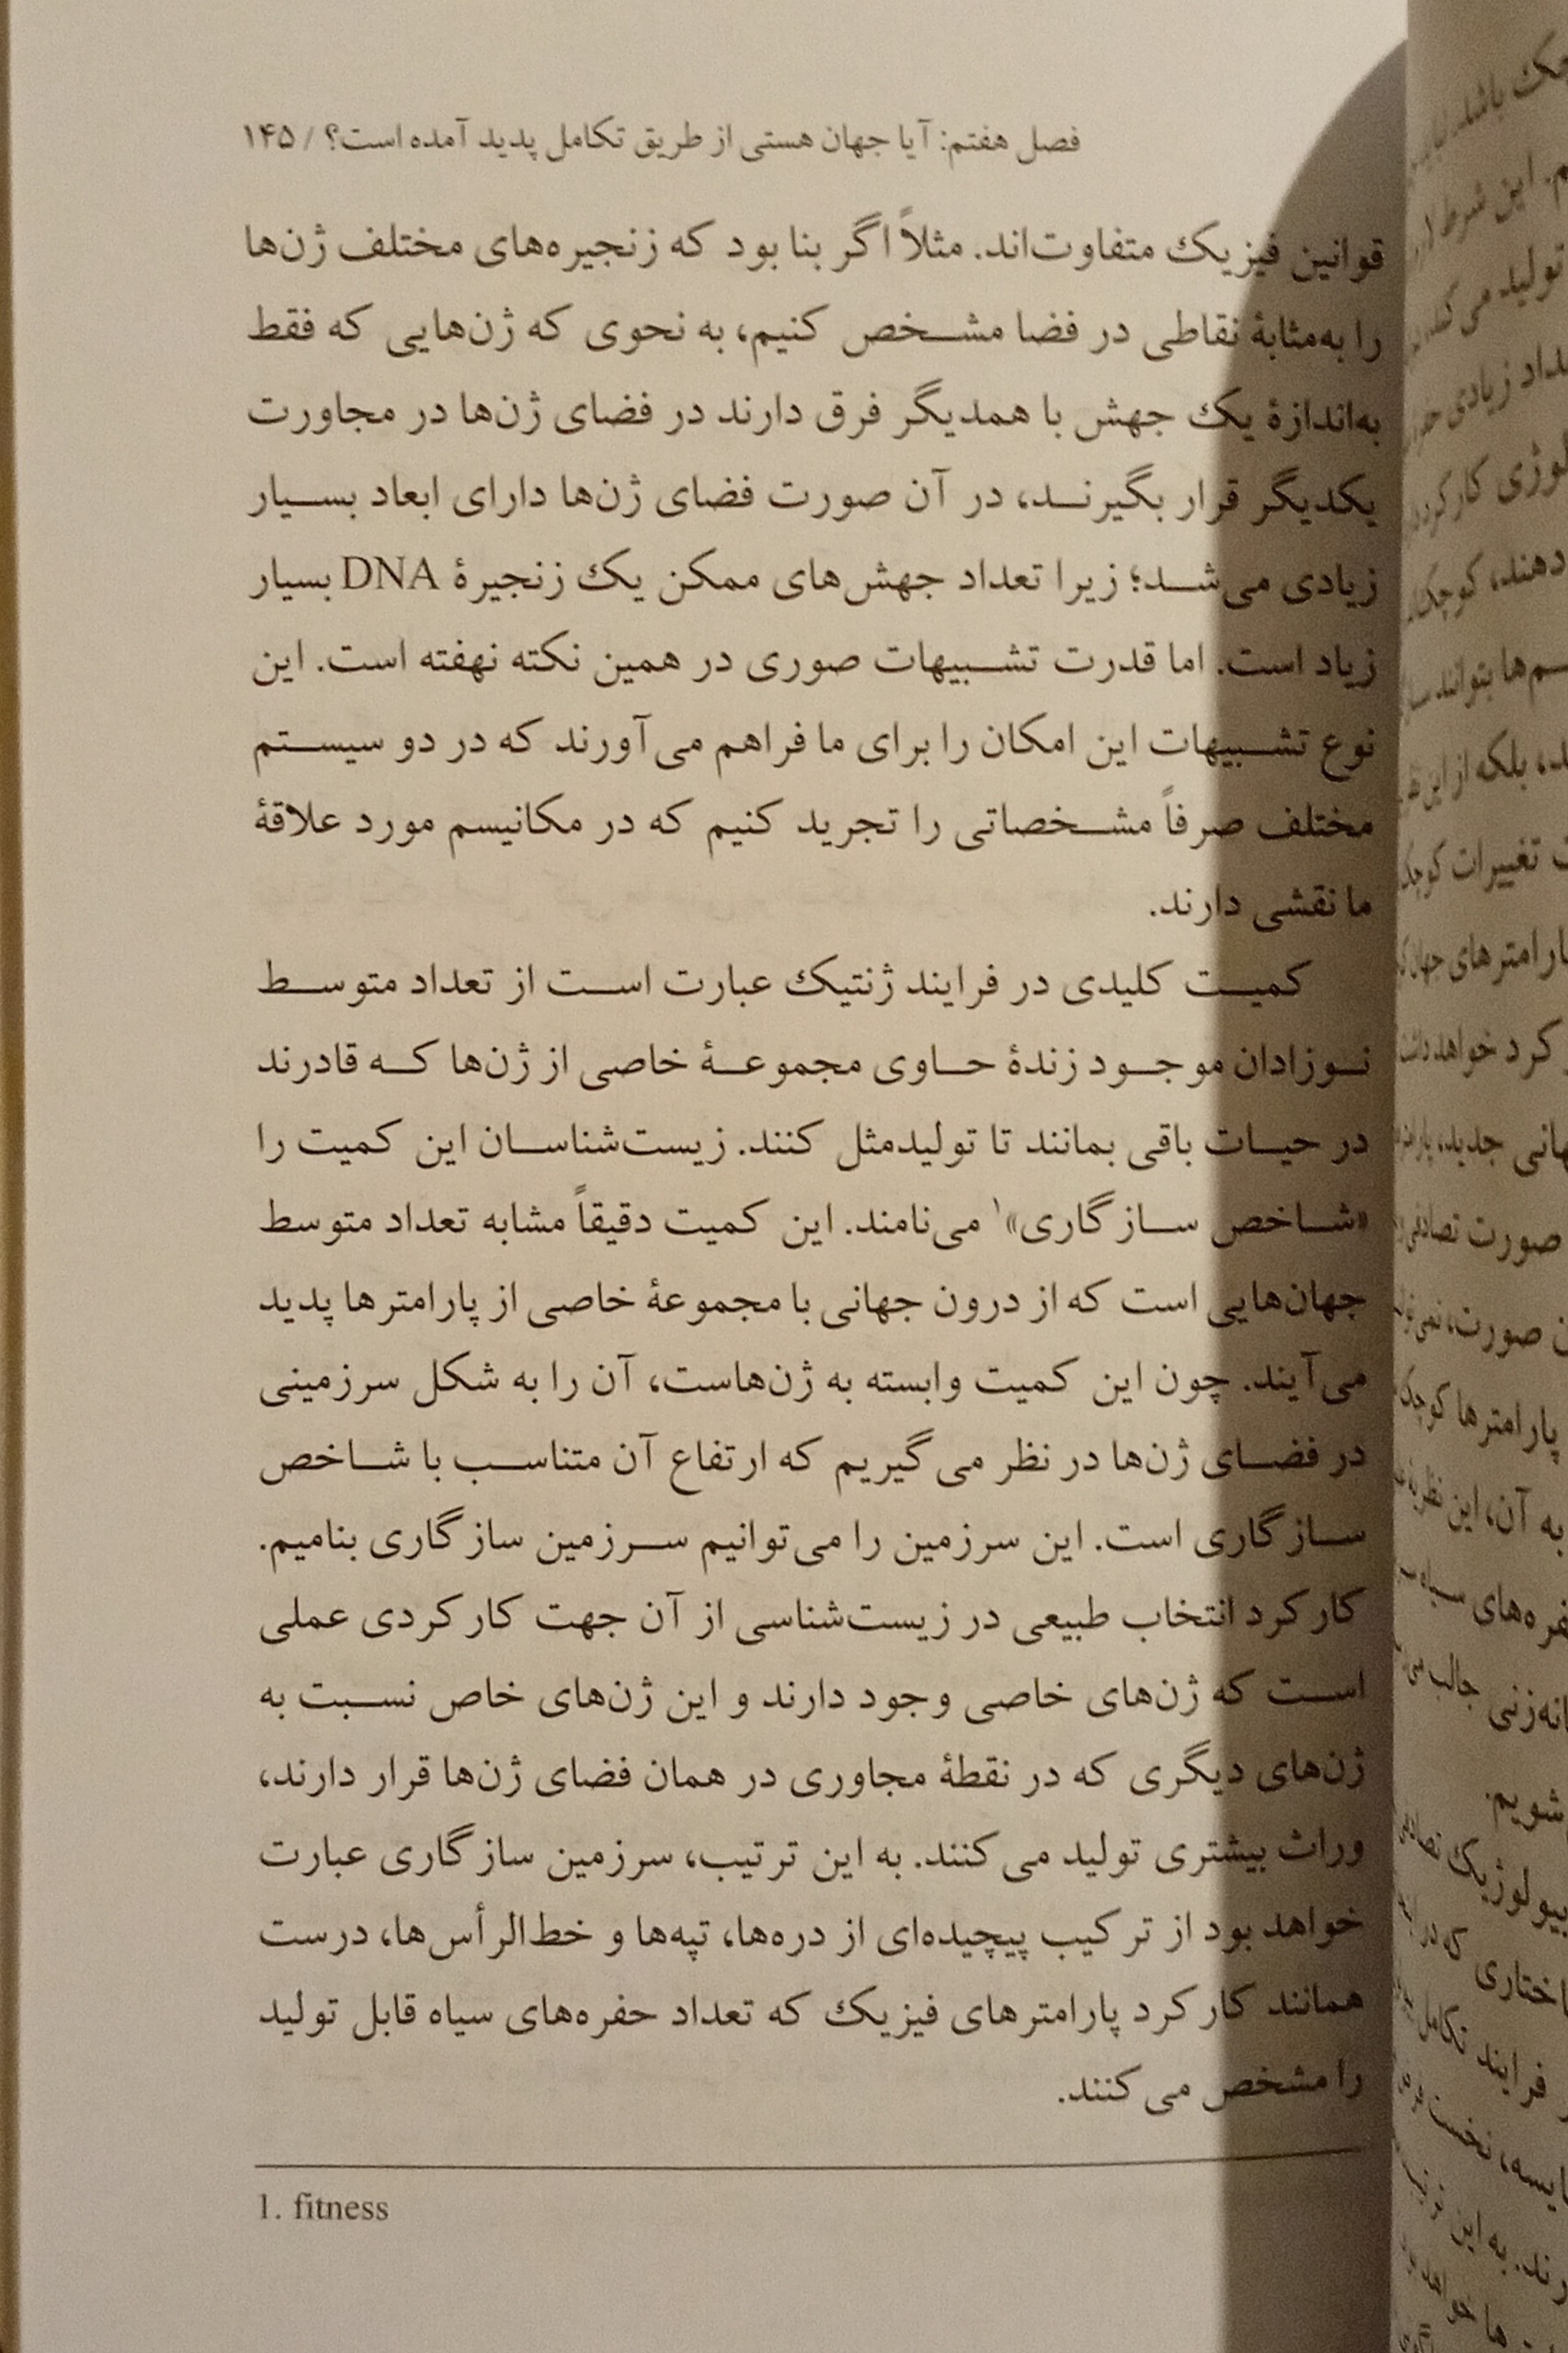 فصل هفتم: آیا جهان هستی از طریق تکامل پدید آمده است؟ / ۱۴۵
قوانین فیزیک متفاوت‌اند. مثلاً اگر بنا بود که زنجیره‌های مختلف ژن‌ها
را به‌مثابهٔ نقاطی در فضا مشخص کنیم، به نحوی که ژن‌هایی که فقط
به‌اندازهٔ یک جهش با همدیگر فرق دارند در فضای ژن‌ها در مجاورت
یکدیگر قرار بگیرند، در آن صورت فضای ژن‌ها دارای ابعاد بسیار
زیادی می‌شد؛ زیرا تعداد جهش‌های ممکن یک زنجیرهٔ DNA بسیار
زیاد است. اما قدرت تشبیهات صوری در همین نکته نهفته است. این
نوع تشبیهات این امکان را برای ما فراهم می‌آورند که در دو سیستم
مختلف صرفاً مشخصاتی را تجرید کنیم که در مکانیسم مورد علاقهٔ
ما نقشی دارند.
کمیت کلیدی در فرایند ژنتیک عبارت است از تعداد متوسط
نوزادان موجود زندهٔ حاوی مجموعهٔ خاصی از ژن‌ها که قادرند
در حیات باقی بمانند تا تولیدمثل کنند. زیست‌شناسان این کمیت را
«شاخص سازگاری»۱ می‌نامند. این کمیت دقیقاً مشابه تعداد متوسط
جهان‌هایی است که از درون جهانی با مجموعهٔ خاصی از پارامترها پدید
می‌آیند. چون این کمیت وابسته به ژن‌هاست، آن را به شکل سرزمینی
در فضای ژن‌ها در نظر می‌گیریم که ارتفاع آن متناسب با شاخص
سازگاری است. این سرزمین را می‌توانیم سرزمین سازگاری بنامیم.
کارکرد انتخاب طبیعی در زیست‌شناسی از آن جهت کارکردی عملی
است که ژن‌های خاصی وجود دارند و این ژن‌های خاص نسبت به
ژن‌های دیگری که در نقطهٔ مجاوری در همان فضای ژن‌ها قرار دارند،
وراث بیشتری تولید می‌کنند. به این ترتیب، سرزمین سازگاری عبارت
خواهد بود از ترکیب پیچیده‌ای از دره‌ها، تپه‌ها و خط‌الرأس‌ها، درست
همانند کارکرد پارامترهای فیزیک که تعداد حفره‌های سیاه قابل تولید
را مشخص می‌کنند.
1. fitness